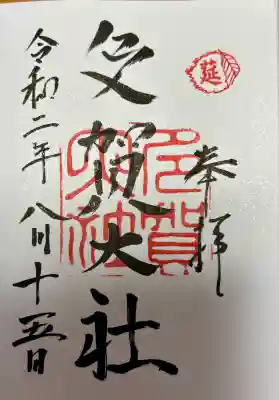 莚
奉拝
多賀大社
令和二年八月十五日